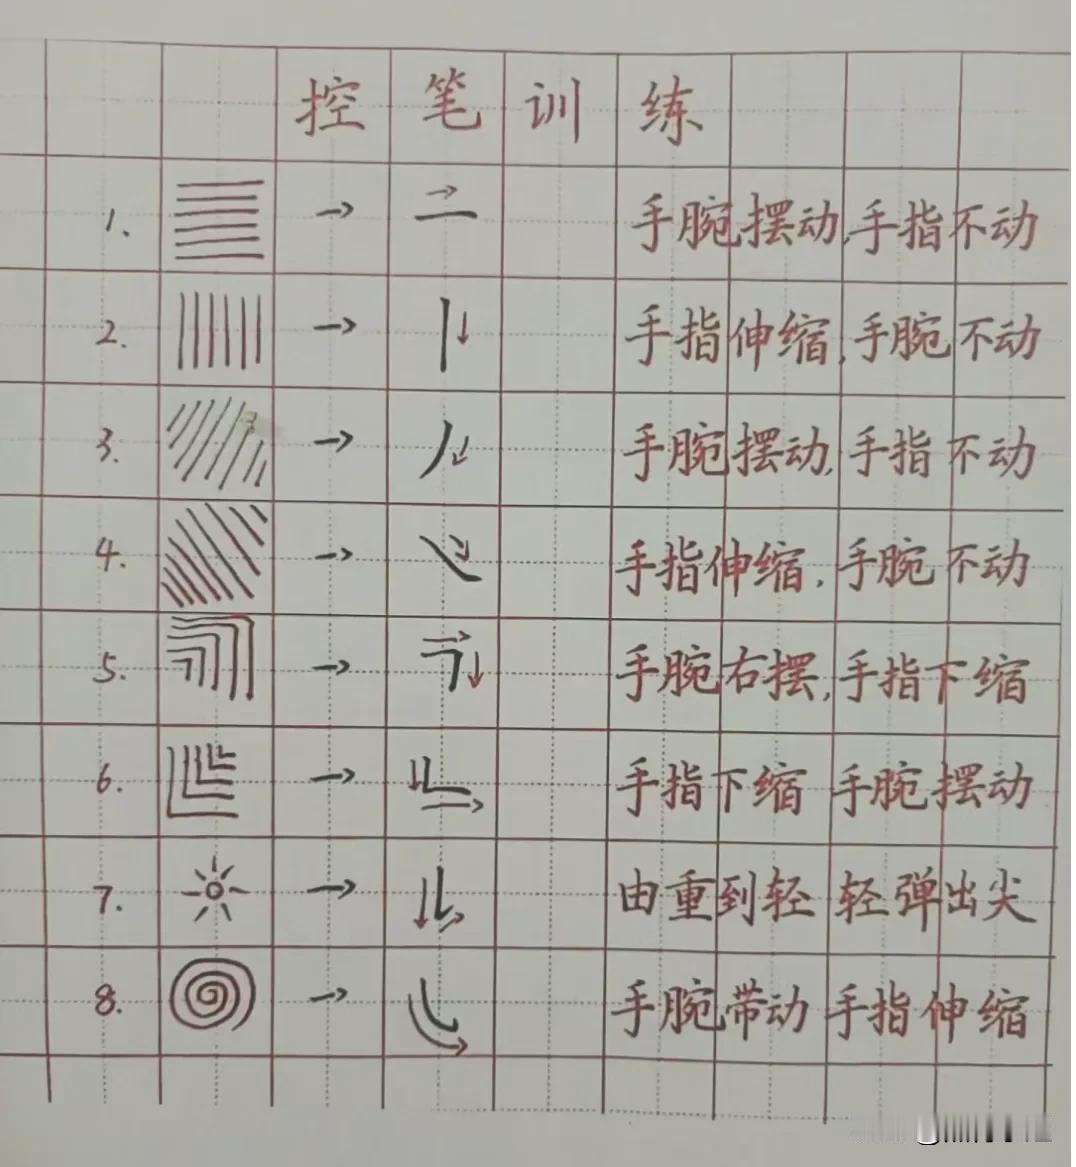 控笔训练
1. → 手腕摆动,手指不动
2. → 手指伸缩,手腕不动
3. → 手腕摆动,手指不动
4. → 手指伸缩,手腕不动
5. → 手腕右摆,手指下缩
6. → 手指下缩 手腕摆动
7. → 由重到轻 轻弹出尖
8. → 手腕带动 手指伸缩